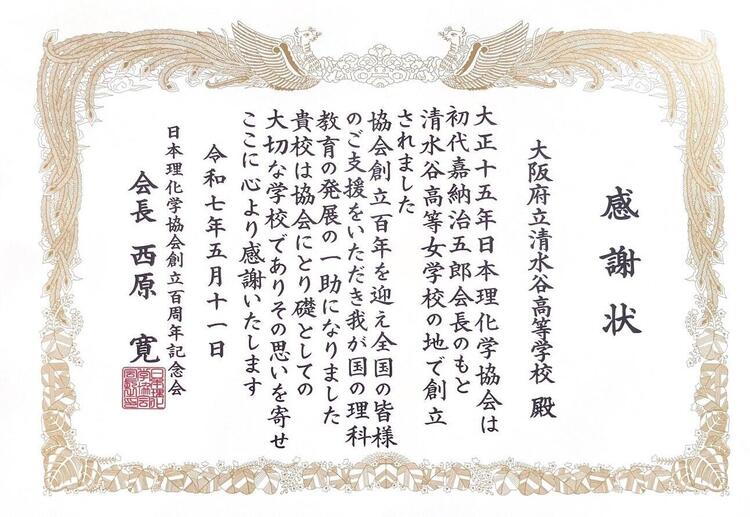 感謝状
大阪府立清水谷高等学校 殿
大正十五年日本理化学協会は
初代嘉納治五郎会長のもと
清水谷高等女学校の地で創立
されました
協会創立百年を迎え全国の皆様
のご支援をいただき我が国の理科
教育の発展の一助になりました
貴校は協会にとり礎としての
大切な学校でありその思いを寄せ
ここに心より感謝いたします
令和七年五月十一日
日本理化学協会創立百周年記念会
会長 西原 寛